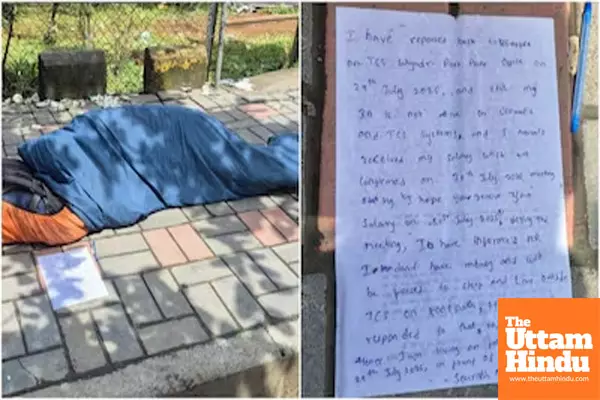 I have reported back
on TCS Sahyadri Park Pune Office on
29th July 2025, and still my
ID is not active on Ultimatix
and TCS systems, and I haven't
received my salary which was
confirmed on 30th July 2025 meeting
salary on 31st July 2025, during the
meeting, I have informed HR
I don't have money and will
be forced to sleep and live outside
TCS on footpath,
responded to that,
I am living on
29th July 2025, in front of
The
Uttam
Hindu
www.theuttamhindu.com